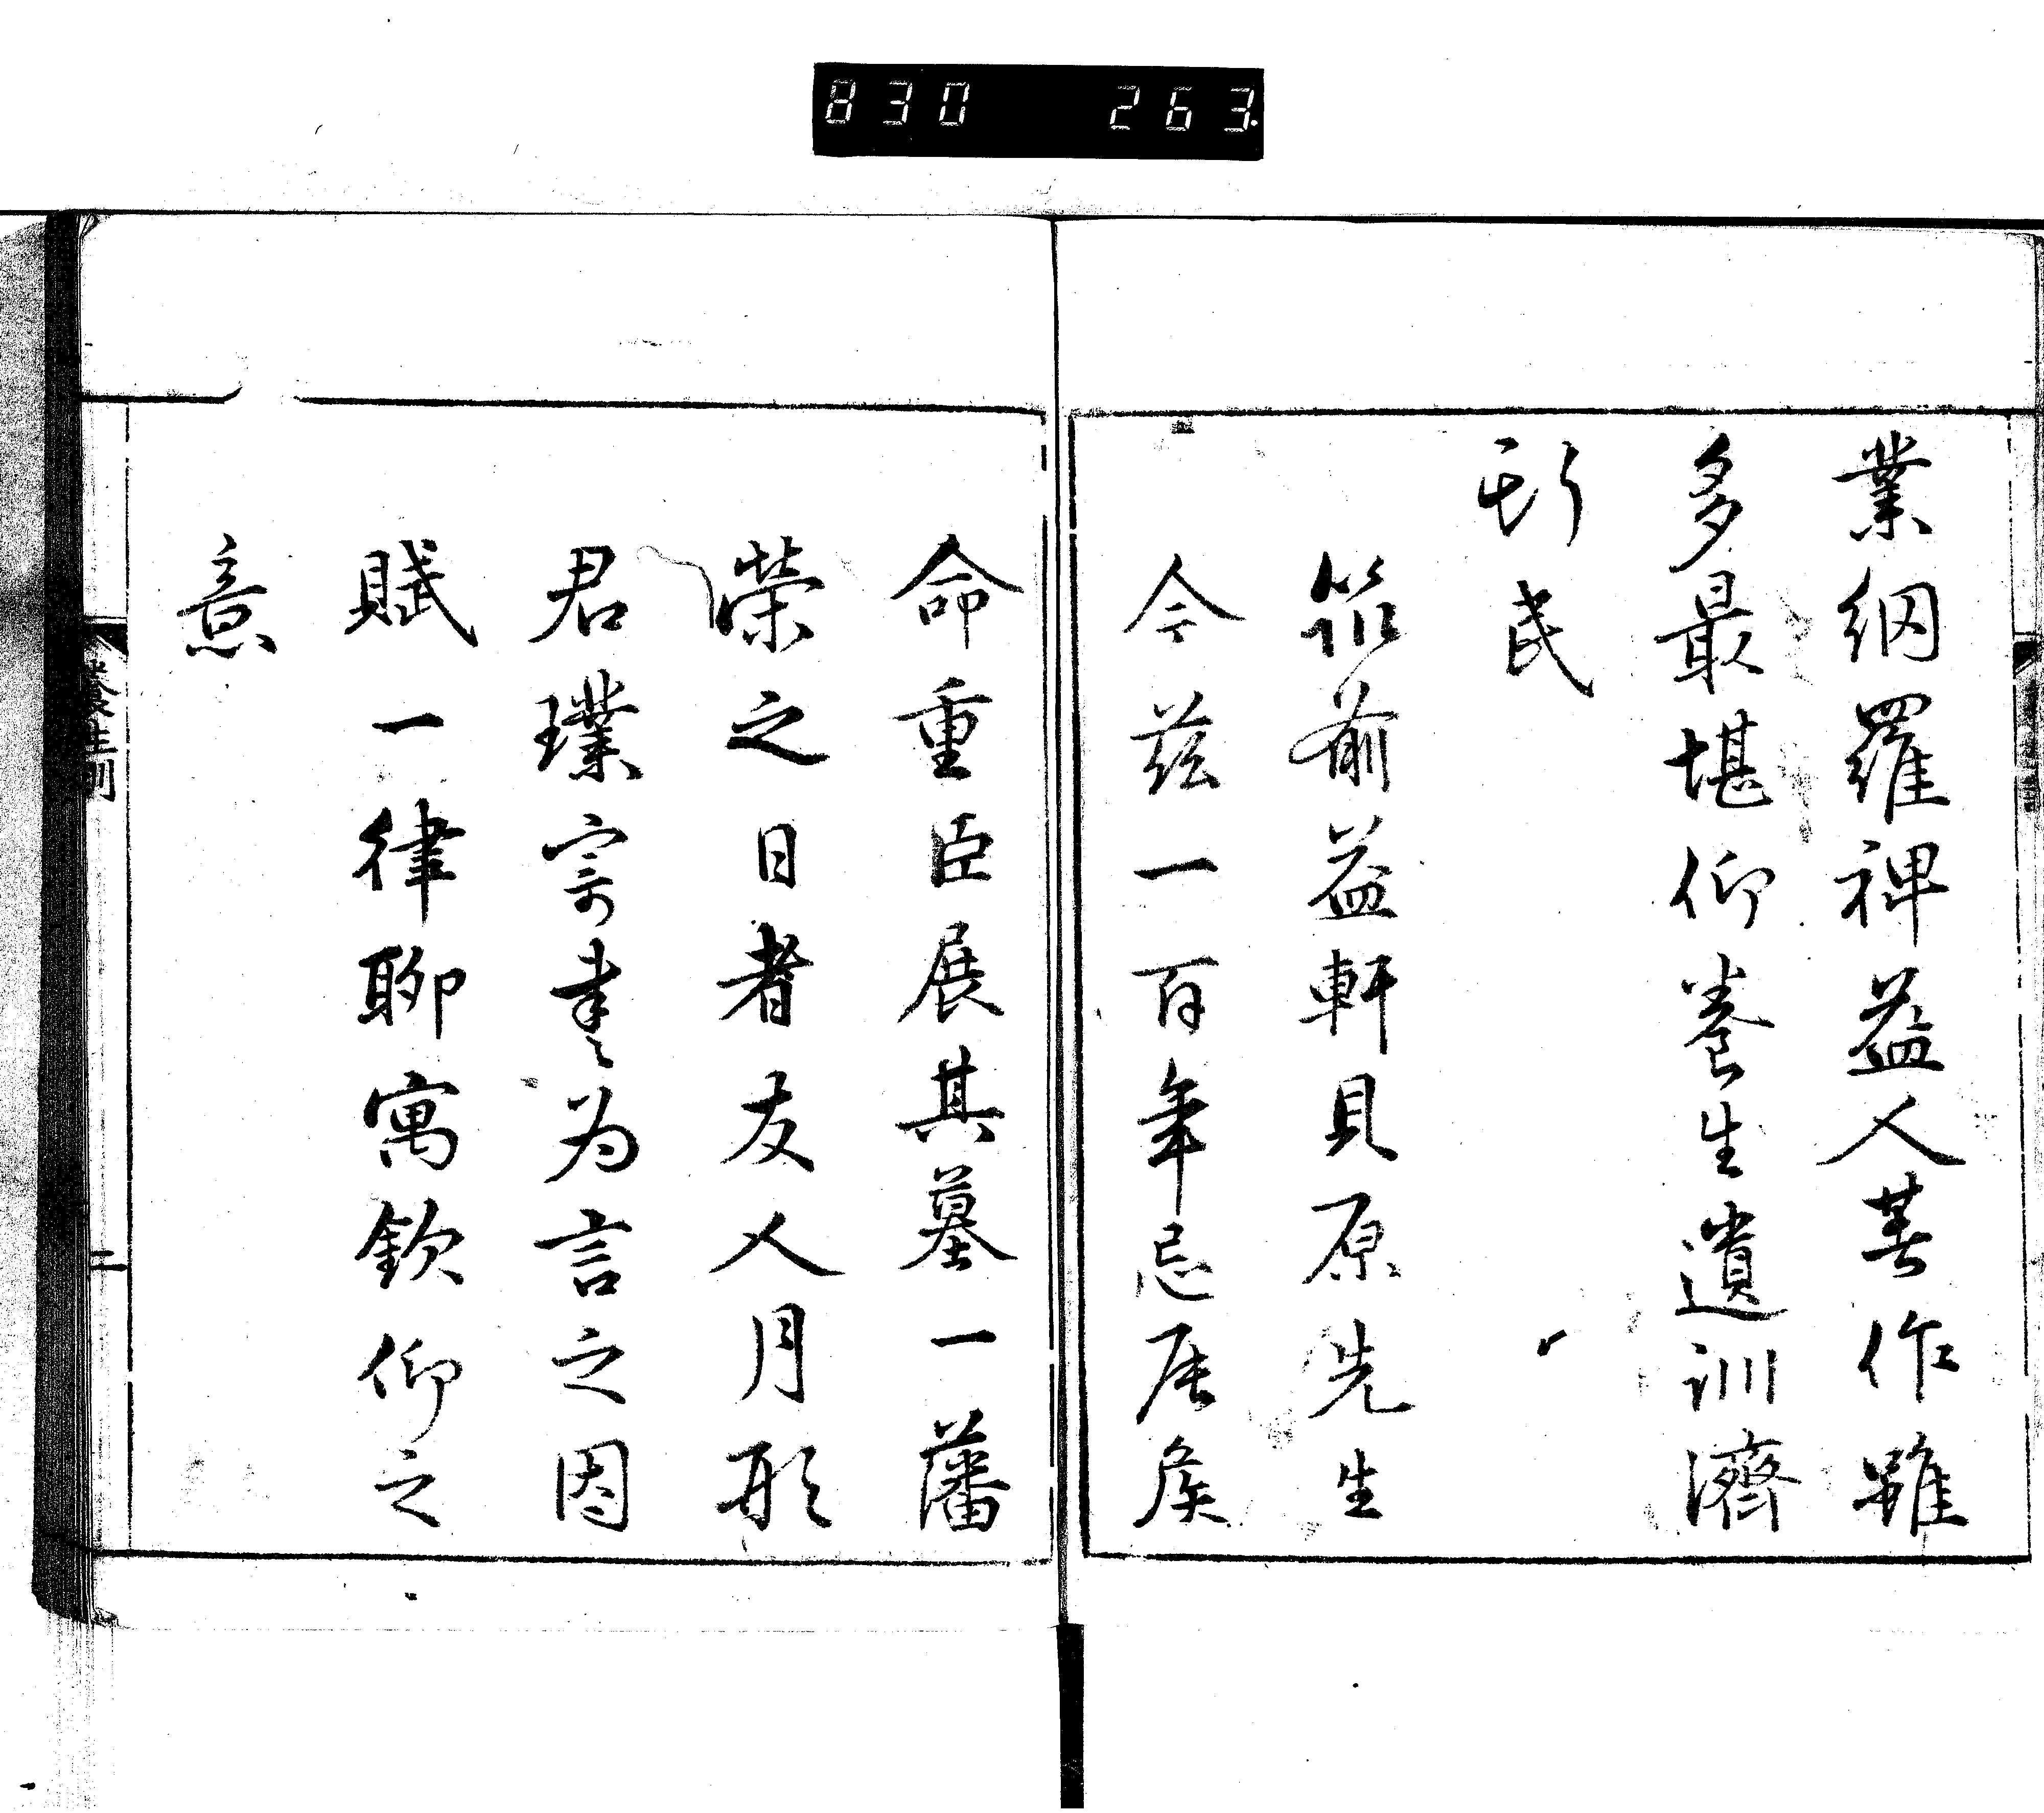 830 263
業網羅裨益人著作雖
多最堪仰養生遺訓濟
斯民
筑前益軒貝原先生
今茲一百年忌辰侯
命重臣展其墓一藩
榮之日者友人月形
君璞寄書為言之因
賦一律聊寓欽仰之
意
養生訓
二